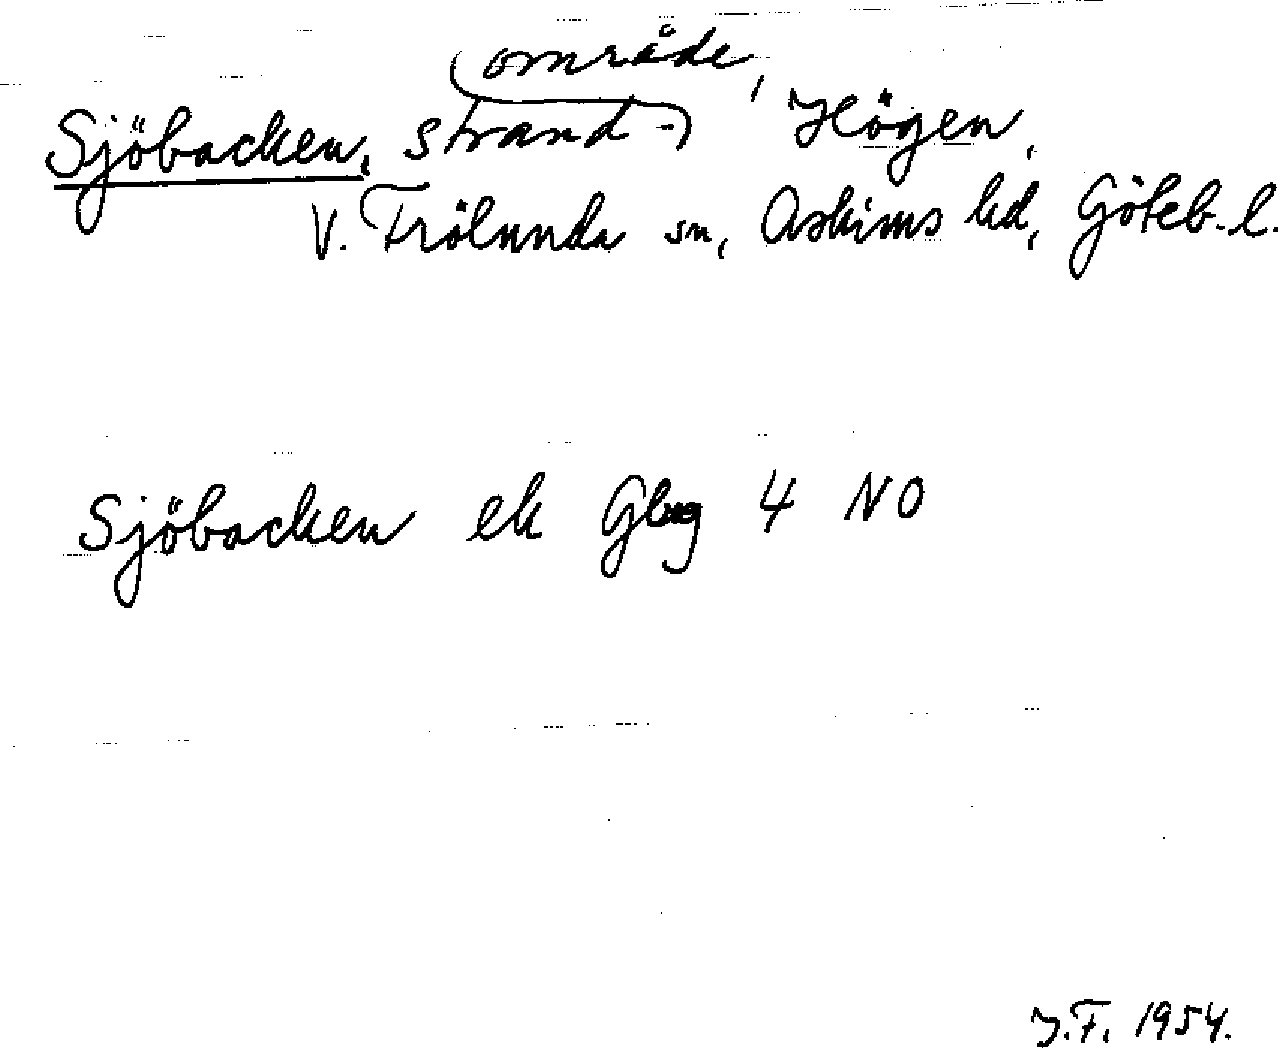 område,
Sjöbacken, strand- Högen,
V. Frölunda sn, Askims hd, Göteb. l.
Sjöbacken ek 4 NO
J.F. 1954.